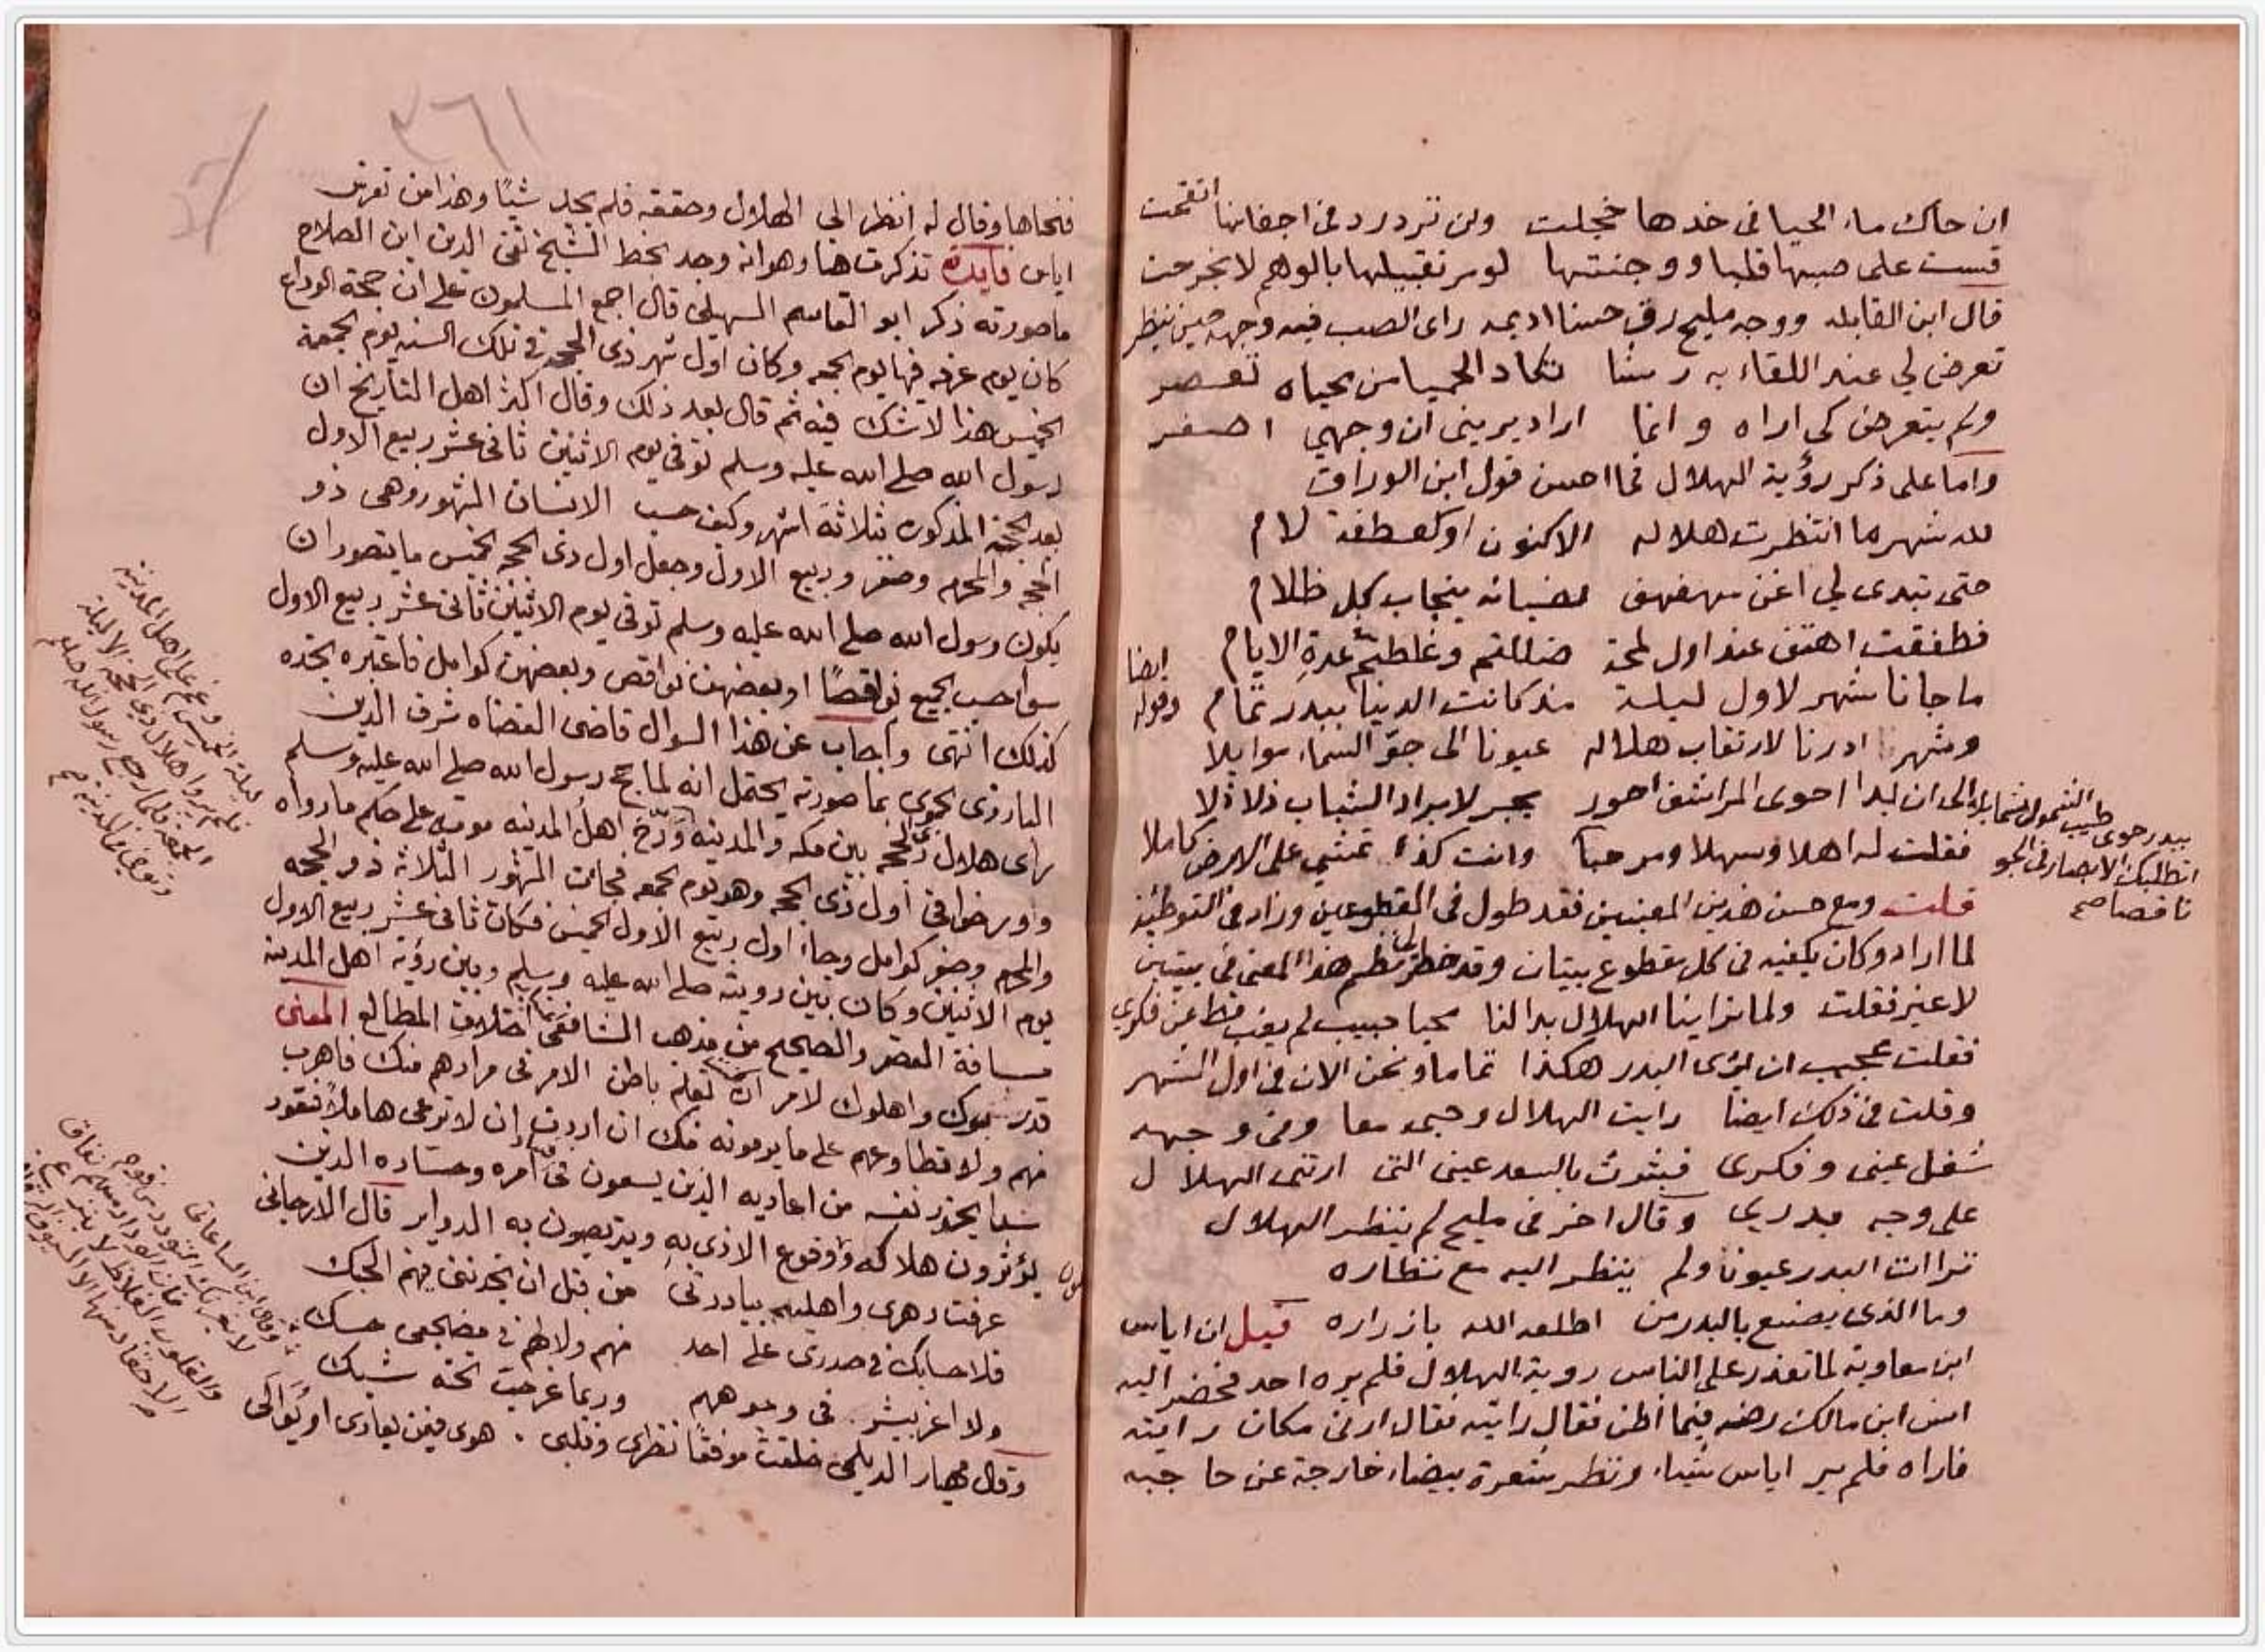 ان حاك ماء الحيا فى خدها خجلت ولن تردد فى اجفانها انتقمت
قست على صبها قلبا ووجنتها لو مر تقبيلها بالوهم لا نجرحت
قال ابن القابله ووجه مليح رق حسنا اديمه راى الصب فيه وجهه حين ينظر
تعرض لي عند اللقاء به رشا تكاد الحميا من محياه تعصر
ولم يتعرض كى اراه وانما اراد يرينى ان وجهي اصفر
واما على ذكر رؤية الهلال فما احسن قول ابن الوراق
لله شهر ما انتظرت هلاله الا كنون او كعطفة لام
حتى تبدى لي اغن مهفهف لضيائه ينجاب كل ظلام
فطفقت اهتف عند اول لمحة ضللتم وغلطتم عدة الايام
ما جانا شهر لاول ليلة مذ كانت الدنيا ببدر تمام وقوله ايضا
وشهر ادرنا لارتقاب هلاله عيونا الى جو السماء موايلا
الى ان بدا احوى المراشف احور يجر لابراد الشباب ذلاذلا
فقلت له اهلا وسهلا ومرحبا وانت كذا تمشي على الارض كاملا
بيدر حوى طيب الشمول شمايلا
اتطلبك الابصار فى الجو
ناقصا صح
قلت ومع حسن هذين المعنيين فقد طول فى المقطوعين وزاد فى التوطئة
لما اراد وكان يكفيه فى كل مقطوع بيتان وقد خطر لى نظم هذا المعنى فى بيتين
لا غير فقلت ولما تراينا الهلال بدا لنا محيا حبيب لم يغب قط عن فكري
فقلت عجيب ان يرى البدر هكذا تماما ونحن الان فى اول الشهر
وقلت فى ذلك ايضا رايت الهلال وحبى معا وفى وجهه
شغل عينى وفكرى فبشرت بالسعد عينى التى ارتنى الهلال
على وجه بدري وقال اخر فى مليح لم ينظر الهلال
تراات البدر عيونا ولم ينظر اليه مع نظاره
وما الذى يصنع بالبدر من اطلعه الله بازراره قيل ان اياس
ابن معاوية لما تعذر على الناس روية الهلال فلم يره احد فحضر اليه
انس ابن مالك رضه فيما اظن فقال رايته فقال ارنى مكان رايته
فاراه فلم ير اياس شيا ونظر شعرة بيضاء خارجة عن حاجبه
٣٦١
فنحاها وقال له انظر الى الهلال وحققه فلم يجد شيئا وهذا من تفرس
اياس فايدة تذكرت هنا وهو انه وجد بخط الشيخ تقى الدين ابن الصلاح
ما صورته ذكر ابو القاسم السهيلى قال اجمع المسلمون على ان حجة الوداع
كان يوم عرفه فيها يوم الجمعه وكان اول شهر ذى الحجه فى تلك السنه يوم الجمعة
الخميس هذا لا شك فيه ثم قال بعد ذلك وقال اكثر اهل التاريخ ان
رسول الله صلى الله عليه وسلم توفى يوم الاثنين ثانى عشر ربيع الاول
بعد الحجة المذكوره بثلاثة اشهر وكيف حسب الانسان الشهور وهى ذو
الحجه والمحرم وصفر وربيع الاول وجعل اول ذى الحجه الخميس ما يتصور ان
يكون رسول الله صلى الله عليه وسلم توفى يوم الاثنين ثانى عشر ربيع الاول
سوا حسب الجميع نواقصا او بعضهن نواقص وبعضهن كوامل فاعتبره تجده
كذلك انتهى واجاب عن هذا السوال قاضى القضاه شرف الدين
البارزى الحموى بما صورته يحتمل انه لما حج رسول الله صلى الله عليه وسلم
راى هلال ذى الحجه بين مكه والمدينه وارخ اهل المدينه موته على حكم ما رواه
وورخوا فى اول ذى الحجه وهو يوم الجمعه فجات الشهور الثلاثه ذو الحجه
والمحرم وصفر كوامل وجاء اول ربيع الاول الخميس فكان ثانى عشر ربيع الاول
يوم الاثنين وكان بين رويته صلى الله عليه وسلم وبين رؤية اهل المدينه
مسافة القصر والصحيح من مذهب الشافعى اختلاف المطالع المعنى
قدر شبوك واهلوك لامر ان تعلم باطن الامر فى مرادهم منك فاهرب
منهم ولا تطاوعهم على ما يرمونه منك ان اردت ان لا ترعى هاملا فتقود
يحذر نفسه من اعاديه الذين يسعون فى امره وحساده الذين
يؤثرون هلاكه ووقوع الاذى به ويتربصون به الدواير قال الارجانى
عرفت دهرى واهليه ببادرتى من قبل ان نجذتنى فيهم الحنك
فلا حسايك فى صدرى على احد منهم ولا لهم فى مضجعى حسك
ولا اغر ببشر فى وجوههم وربما غر حب تحته شبك
وقال مهيار الديلمى خلقت موفقا نظرى وقلبى هوى فيمن يعادى او يوالى
ليلة الخميس وغم على اهل المدينة
فلم يروا هلال ذى الحجة الا ليلة
الجمعة فلما رجع رسول الله صلعم
وتوفى فى المدينه صح
وقال ابن الساعاتى
لا يغرنك التودد من قوم
فان الوداد منهم نفاق
والقلوب الغلاظ لا ينزع
الاحقاد منها الا السيوف الرقاق